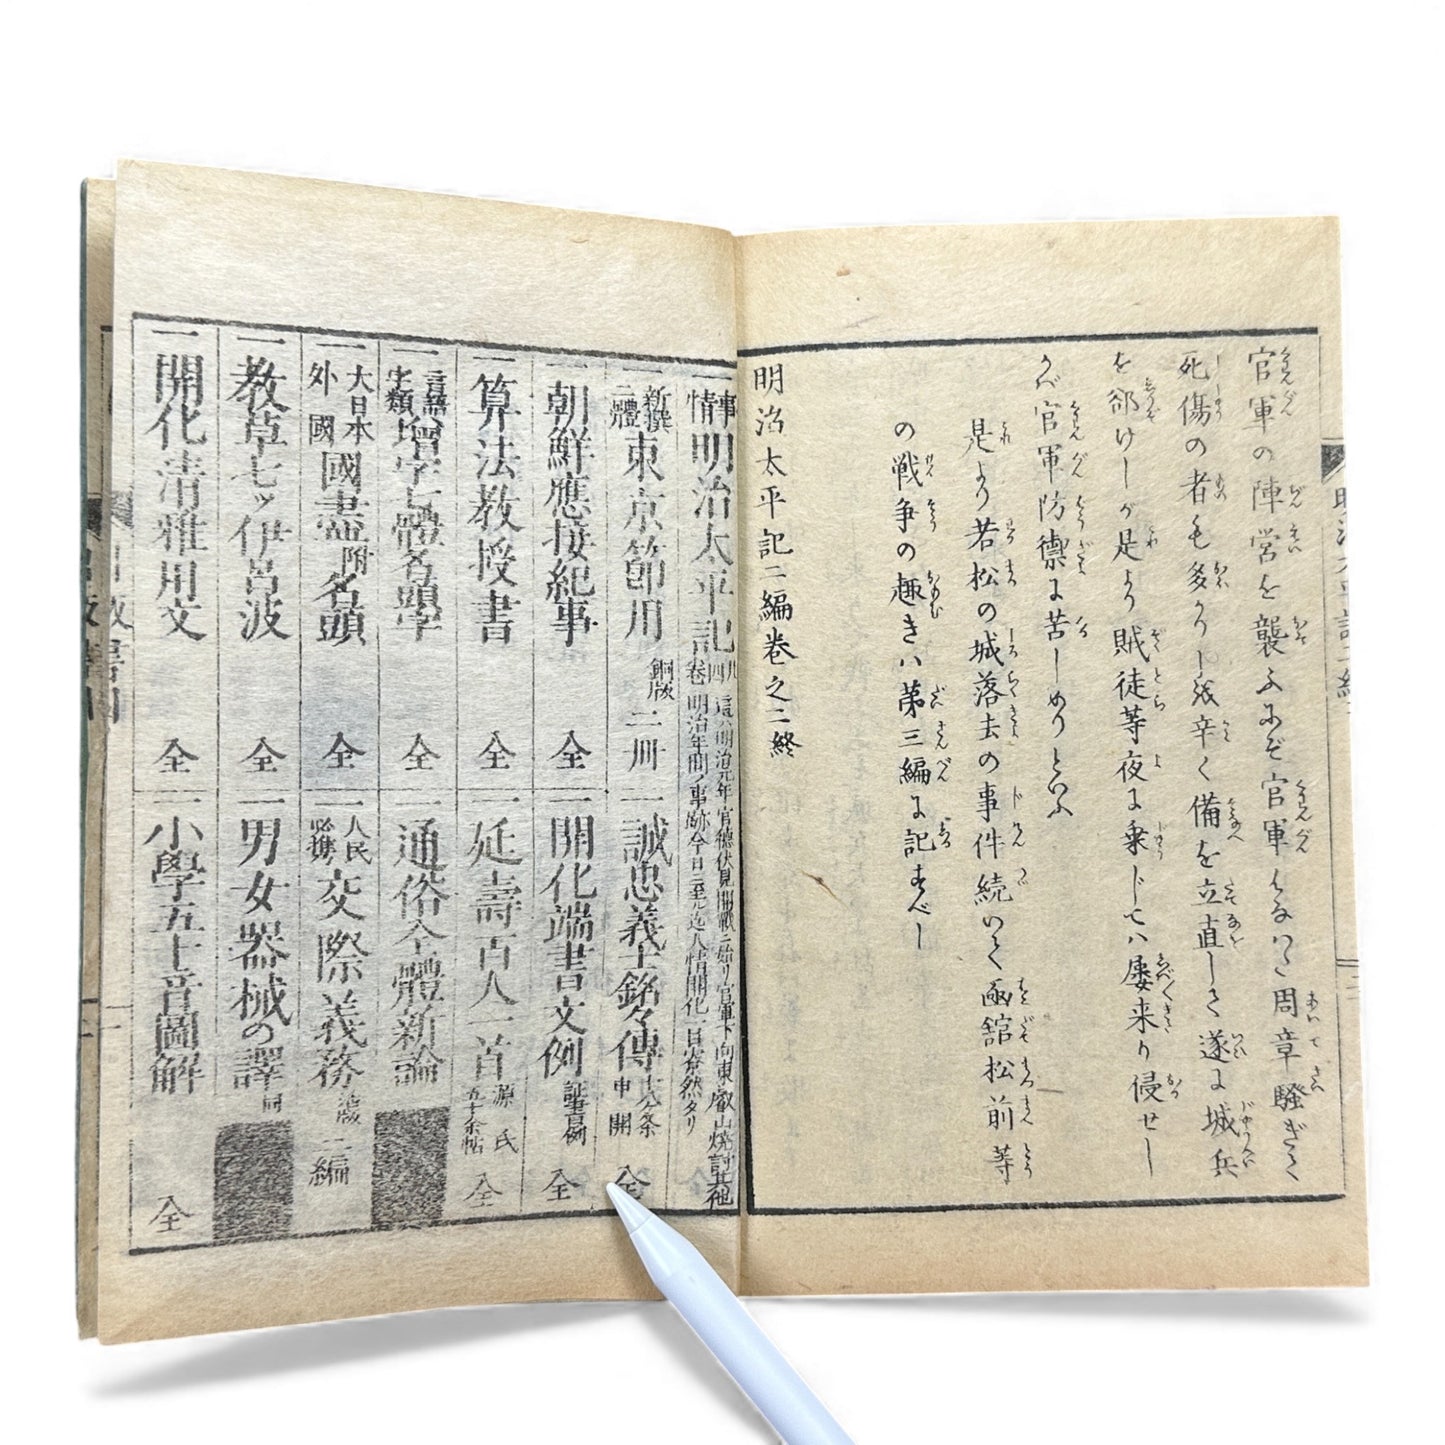 官軍の陣営を襲ふにぞ官軍ハ周章騒ぎて
死傷の者も多かりしが辛く備を立直して遂に城兵
を郤けしが是より賊徒等夜に乗じてハ屡来り侵せし
かバ官軍防禦に苦しめりといふ
是より若松の城落去の事件続いて凾舘松前等
の戦争の趣きハ第三編に記すべし
明治太平記二編巻之二終
事情明治太平記
這ハ明治元年官德伏見開戰ニ始リ官軍下向東叡山焼討其他
明治年間ノ事跡今日ニ至ル迄人情開化一目瞭然タリ
一新撰二體東京節用 銅版 二冊
一朝鮮應接紀事 全
一算法教授書 全
一言語字類増字七體名頭字 全
一大日本外國國盡附名頭 全
一教草七ッ伊呂波 全
一開化清雅用文 全
一誠忠義士銘々傳 十八ケ条申開 全
一開化端書文例 証書例 全
一延壽百人一首 源氏五十余帖 全
一通俗全體新論
一人民必携交際義務 二編
一男女器械の譯 同
一小學五十音圖解 全